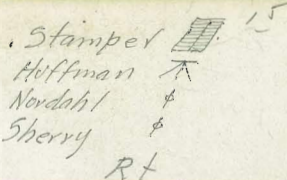 . Stamper 15
Hoffman
Nordahl ¢
Sherry ¢
Rt